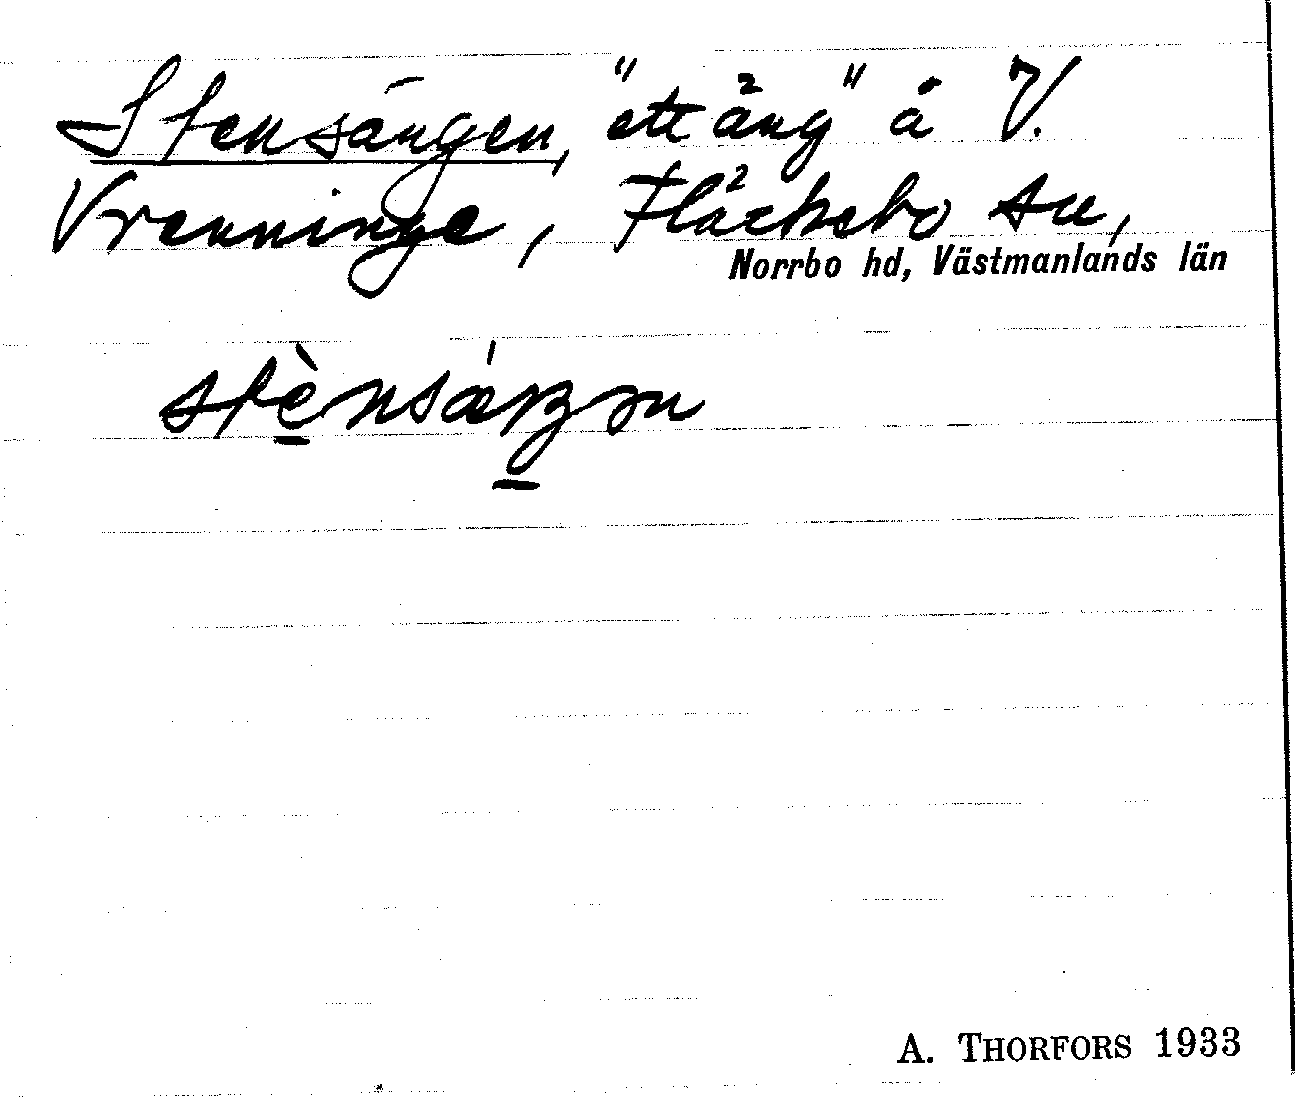 Stensängen, "ett äng" å V.
Vrenninge, Fläckebo sn,
Norrbo hd, Västmanlands län
stènsáŋən
A. THORFORS 1933